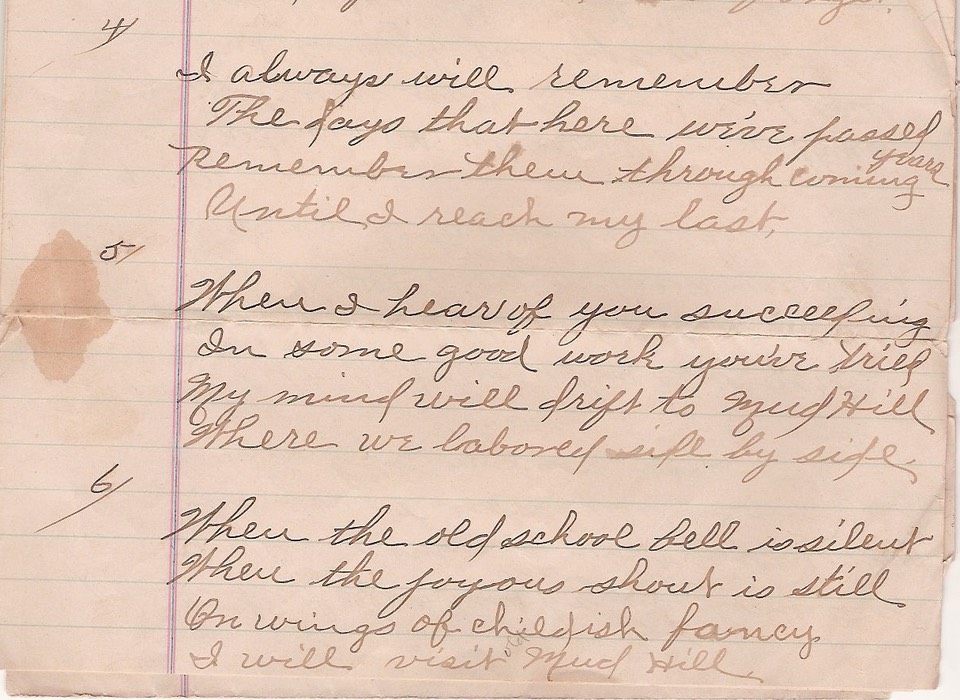 4/
I always will remember
The days that here we've passed
Remember them through coming years
Until I reach my last,
5/
When I hear of you succeeding
In some good work you've tried
My mind will drift to Mud Hill
Where we labored side by side.
6/
When the old school bell is silent
When the joyous shout is still
On wings of childish fancy
I will visit Mud Hill.